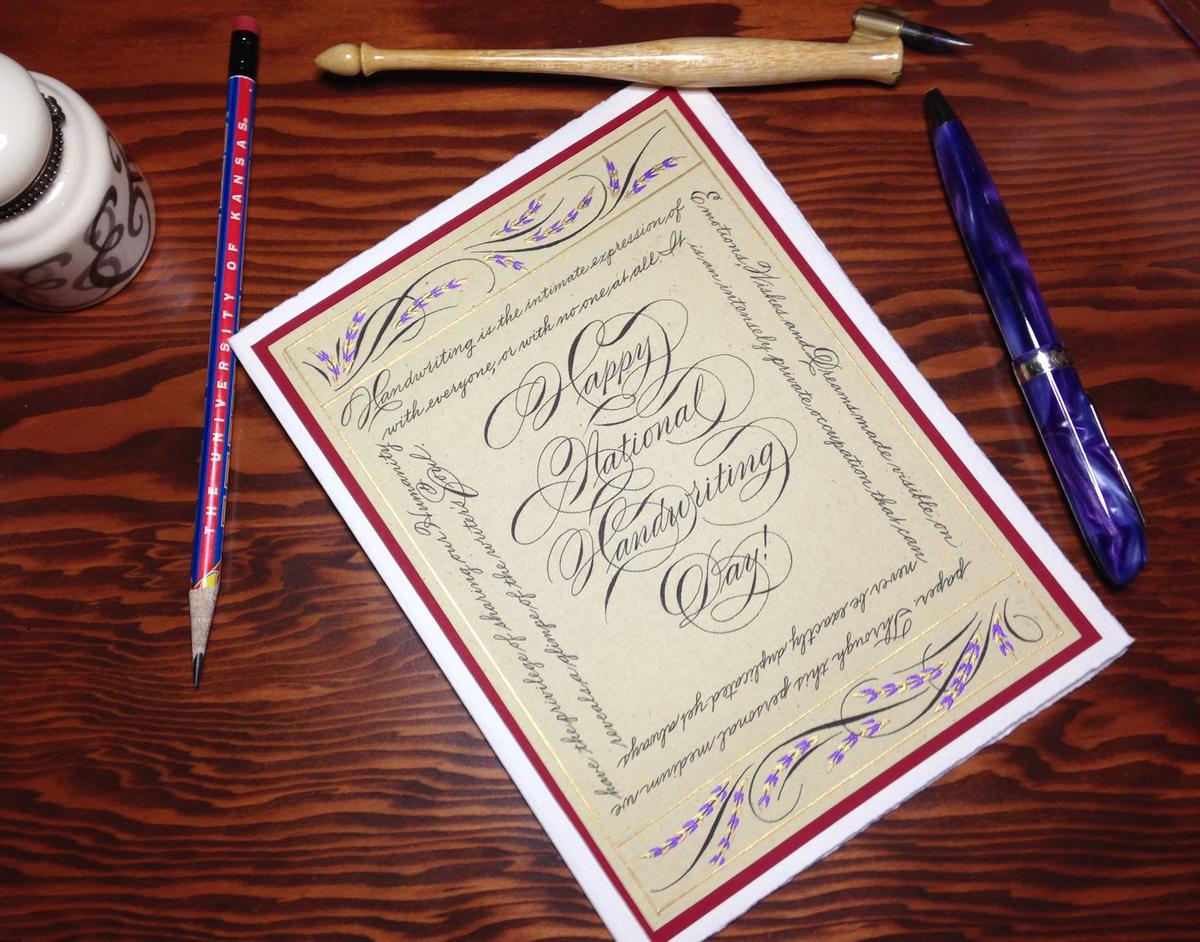 THE UNIVERSITY OF KANSAS®
Handwriting is the intimate expression of
Emotions, Wishes and Dreams made visible on
paper. Through this personal medium we
have the privilege of sharing our Humanity
with everyone, or with no one at all. It
is an intensely private occupation that can
never be exactly duplicated yet always
reveals a glimpse of the writer's Soul.
Happy
National
Handwriting
Day!